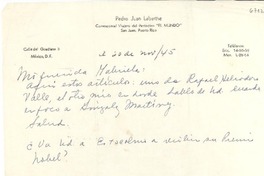 Pedro Juan Labarthe
Corresponsal Viajero del Periódico "EL MUNDO"
San Juan, Puerto Rico
México, D.F.
Teléfonos
el 20 de nov/45
Mi querida Gabriela:
Aquí estos artículos: uno de Rafael Heliodoro
Valle, el otro mío en donde hablo de Ud. cuando
enfoco a González Martínez.
Salud.
¿Va Ud a Estocolmo a recibir su Premio
Nobel?